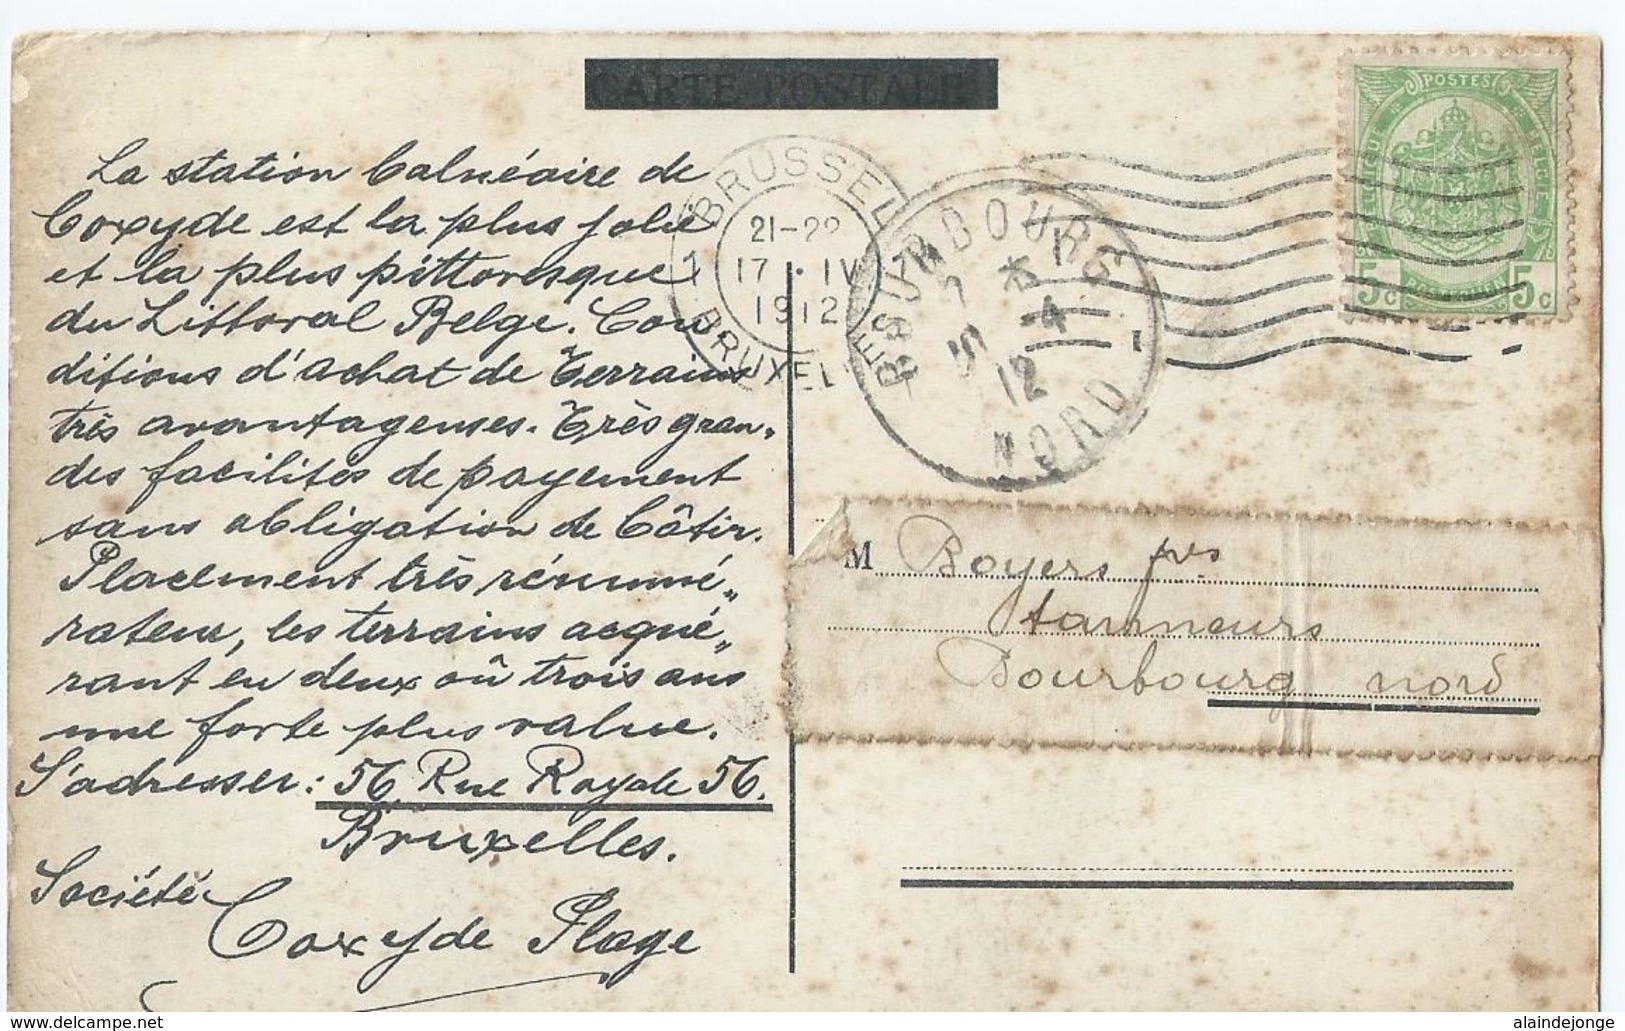 CARTE POSTALE
La station balnéaire de
Coxyde est la plus jolie
et la plus pittoresque
du Littoral Belge. Con
ditions d'achat de Terrains
très avantageuses. Très gran„
des facilités de payement
sans obligation de bâtir.
Placement très rémuné„
rateur, les terrains acqué„
rant en deux où trois ans
une forte plus value.
S'adresser: 56 Rue Royale 56.
Bruxelles.
Société
Coxyde Plage
1 BRUSSEL 1
21-22
17 · IV
1912
BRUXELLES
BOURBOURG
7 *
5 - 4
12
NORD
POSTES
BELGIQUE
BELGIE
5c
5c
POSTERIJEN
M Boyers
tanneurs
Bourbourg nord
delcampe.net
alaindejonge